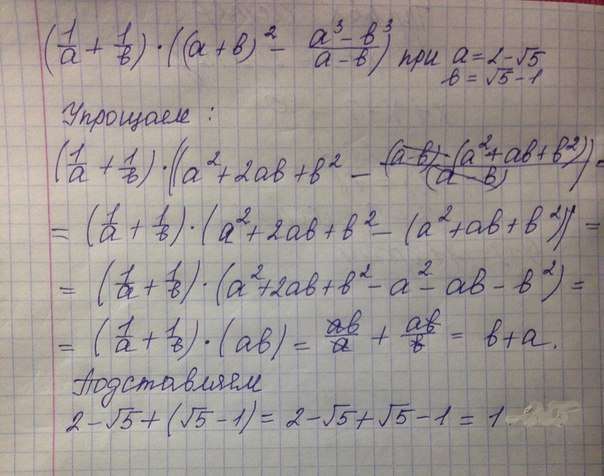 (1/a + 1/b) · ((a+b)² − (a³−b³)/(a−b)) при a=2−√5
b=√5−1
Упрощаем :
(1/a + 1/b) · (a²+2ab+b² − (a−b)(a²+ab+b²)/(a−b)) =
= (1/a + 1/b) · (a²+2ab+b² − (a²+ab+b²)) =
= (1/a + 1/b) · (a²+2ab+b²−a²−ab−b²) =
= (1/a + 1/b) · (ab) = ab/a + ab/b = b+a.
Подставляем
2−√5+(√5−1) = 2−√5+√5−1 = 1